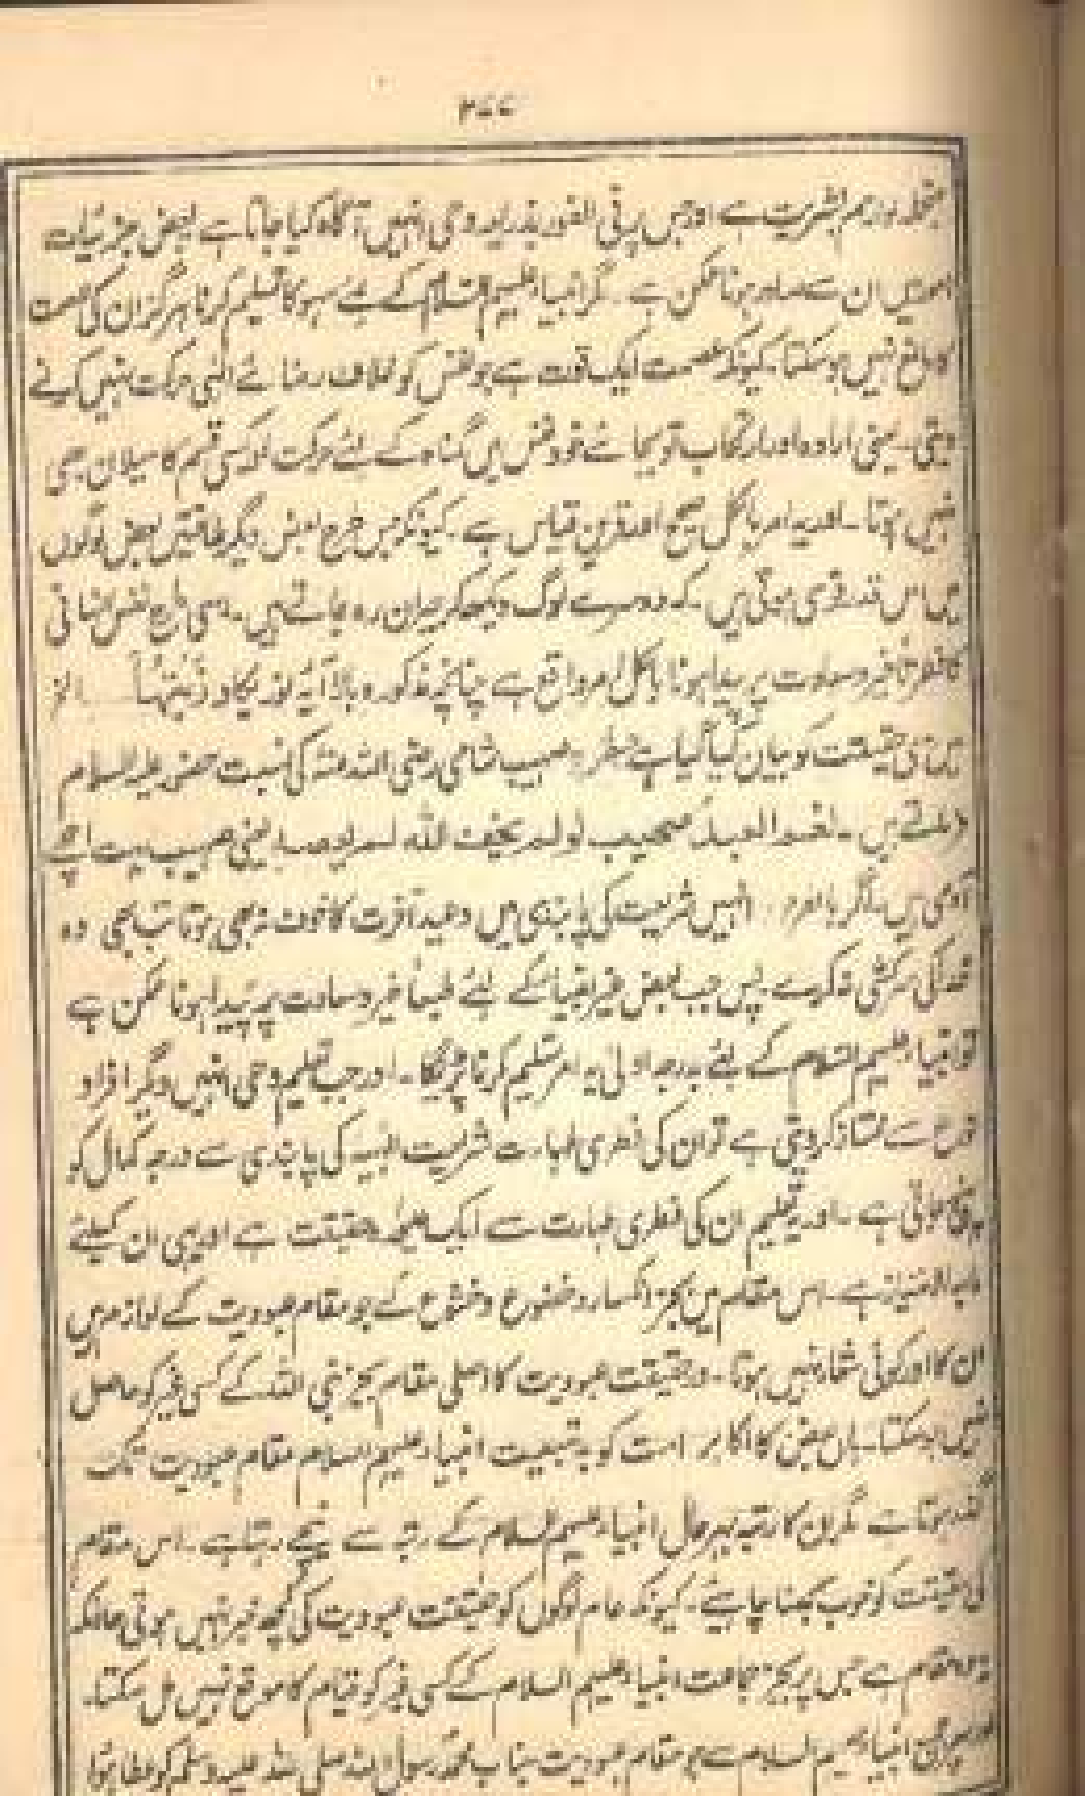 ۲۷۷
منجملہ لوازم بشریت ہے اور جس پر فی الفور بذریعہ وحی انہیں آگاہ کیا جاتا ہے بعض جزئیات
امور میں ان سے صادر ہونا ممکن ہے ۔ مگر انبیاء علیہم السلام کے لئے سہو کا تسلیم کرنا ہرگز ان کی عصمت
کا مانع نہیں ہو سکتا ۔ کیونکہ عصمت ایک قوت ہے جو نفس کو خلاف رضائے الٰہی حرکت نہیں کرنے
دیتی ۔ یعنی ارادہ اور ارتکاب تو بجائے خود نفس میں گناہ کے لئے حرکت اور کسی قسم کا میلان بھی
نہیں ہوتا ۔ اور یہ امر بالکل صحیح اور قرین قیاس ہے ۔ کیونکہ جس طرح بعض دیگر طاقتیں بعض لوگوں
میں اس قدر قوی ہوتی ہیں ۔ کہ دوسرے لوگ دیکھکر حیران رہ جاتے ہیں ۔ اسی طرح نفس انسانی
کا فطرتاً خیر و سعادت پر پیدا ہونا بالکل امر واقع ہے چنانچہ مذکورہ بالا آیۂ نور یکاد زیتہا الخ
میں اسی حقیقت کو بیان کیا گیا ہے صہیب رضی اللہ عنہ کی نسبت حضور علیہ السلام
فرماتے ہیں ۔ نعم العبد صہیب لو لم یخف اللہ لم یعصہ یعنی صہیب بہت اچھے
آدمی ہیں ۔ اگر بالفرض انہیں شریعت کی پابندی میں وعید آخرت کا خوف نہ بھی ہوتا تب بھی وہ
خدا کی سرکشی نہ کرتے پس جب بعض غیر انبیاء کے لئے طبعاً خیر و سعادت پر پیدا ہونا ممکن ہے
تو انبیاء علیہم السلام کے لئے بدرجہ اولیٰ یہ امر تسلیم کرنا پڑیگا ۔ اور جب تعلیم وحی انہیں دیگر افراد
نوع سے ممتاز کر دیتی ہے تو ان کی فطری طہارت شریعت الٰہیہ کی پابندی سے درجہ کمال کو
پہنچ جاتی ہے ۔ اور یہ تعلیم ان کی فطری طہارت سے ایک علیحدہ حقیقت ہے اور یہی ان کیلئے
مابہ الامتیاز ہے ۔ اس مقام میں بجز انکسار و خضوع و خشوع کے جو مقام عبودیت کے لوازم ہیں
ان کا اور کوئی شعار نہیں ہوتا ۔ در حقیقت عبودیت کا اصلی مقام بجز نبی اللہ کے کسی غیر کو حاصل
نہیں ہو سکتا ۔ ہاں بعض اکابر امت کو بہ تبعیت انبیاء علیہم السلام مقام عبودیت تک
گذر ہوتا ہے مگر ان کا رتبہ بہر حال انبیاء علیہم السلام کے رتبہ سے نیچے رہتا ہے ۔ اس مقام
کی حقیقت کو خوب سمجھنا چاہئے ۔ کیونکہ عام لوگوں کو حقیقت عبودیت کی کچھ خبر نہیں ہوتی حالانکہ
یہ وہ مقام ہے جس پر بجز جماعت انبیاء علیہم السلام کے کسی غیر کو قیام کا موقع نہیں مل سکتا ۔
اور پھر جن انبیاء علیہم السلام سے جو مقام عبودیت جناب محمد رسول اللہ صلی اللہ علیہ وسلم کو عطا ہوا